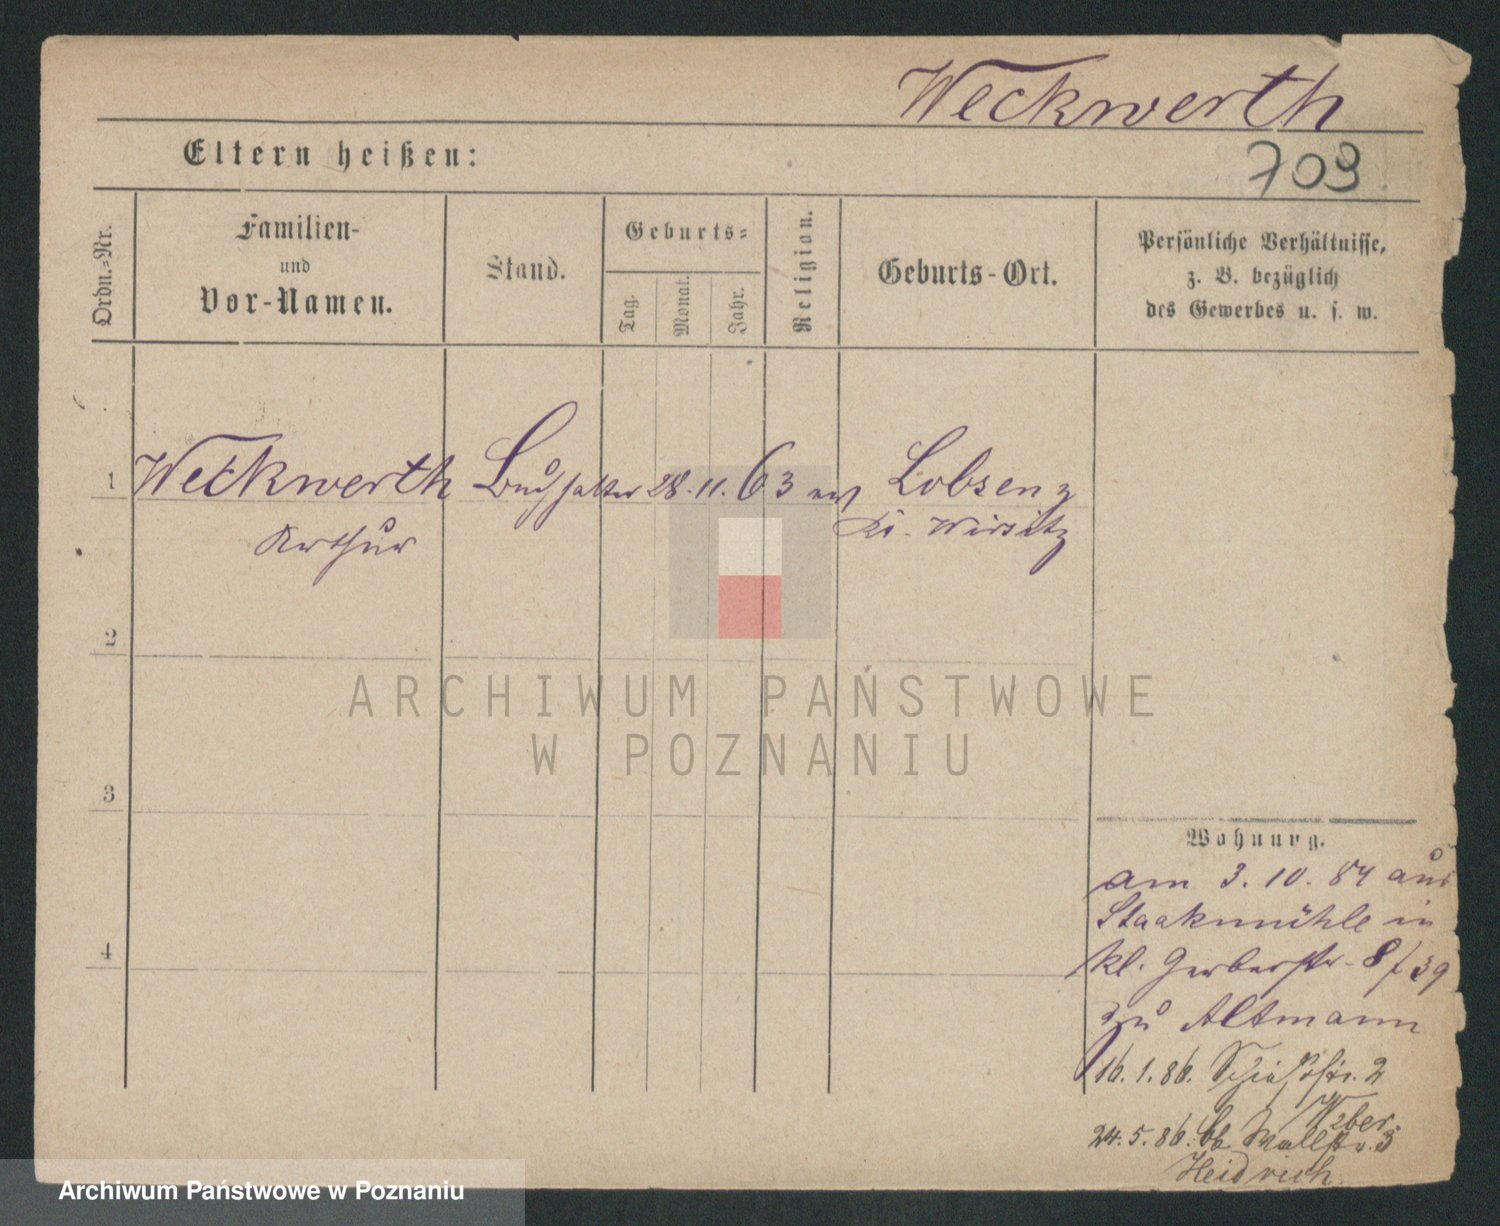 Weckwerth
Eltern heißen:
709
Ordn.-Nr.
Familien-
und
Vor-Namen.
Stand.
Geburts-
Tag.
Monat.
Jahr.
Religion.
Geburts-Ort.
Persönliche Verhältnisse,
z. B. bezüglich
des Gewerbes u. s. w.
1 Weckwerth Buchhalter 28. 11. 63 ev Lobsenz
Arthur Kr. Wirsitz
2
3
4
Wohnung.
am 3. 10. 84 aus
Staakmühle in
kl. Gerberstr. 8/39
zu Altmann
16. 1. 86. Schießstr. 2
Weber.
24. 5. 86. Wallstr. 3
Heidrich
ARCHIWUM PAŃSTWOWE
W POZNANIU
Archiwum Państwowe w Poznaniu